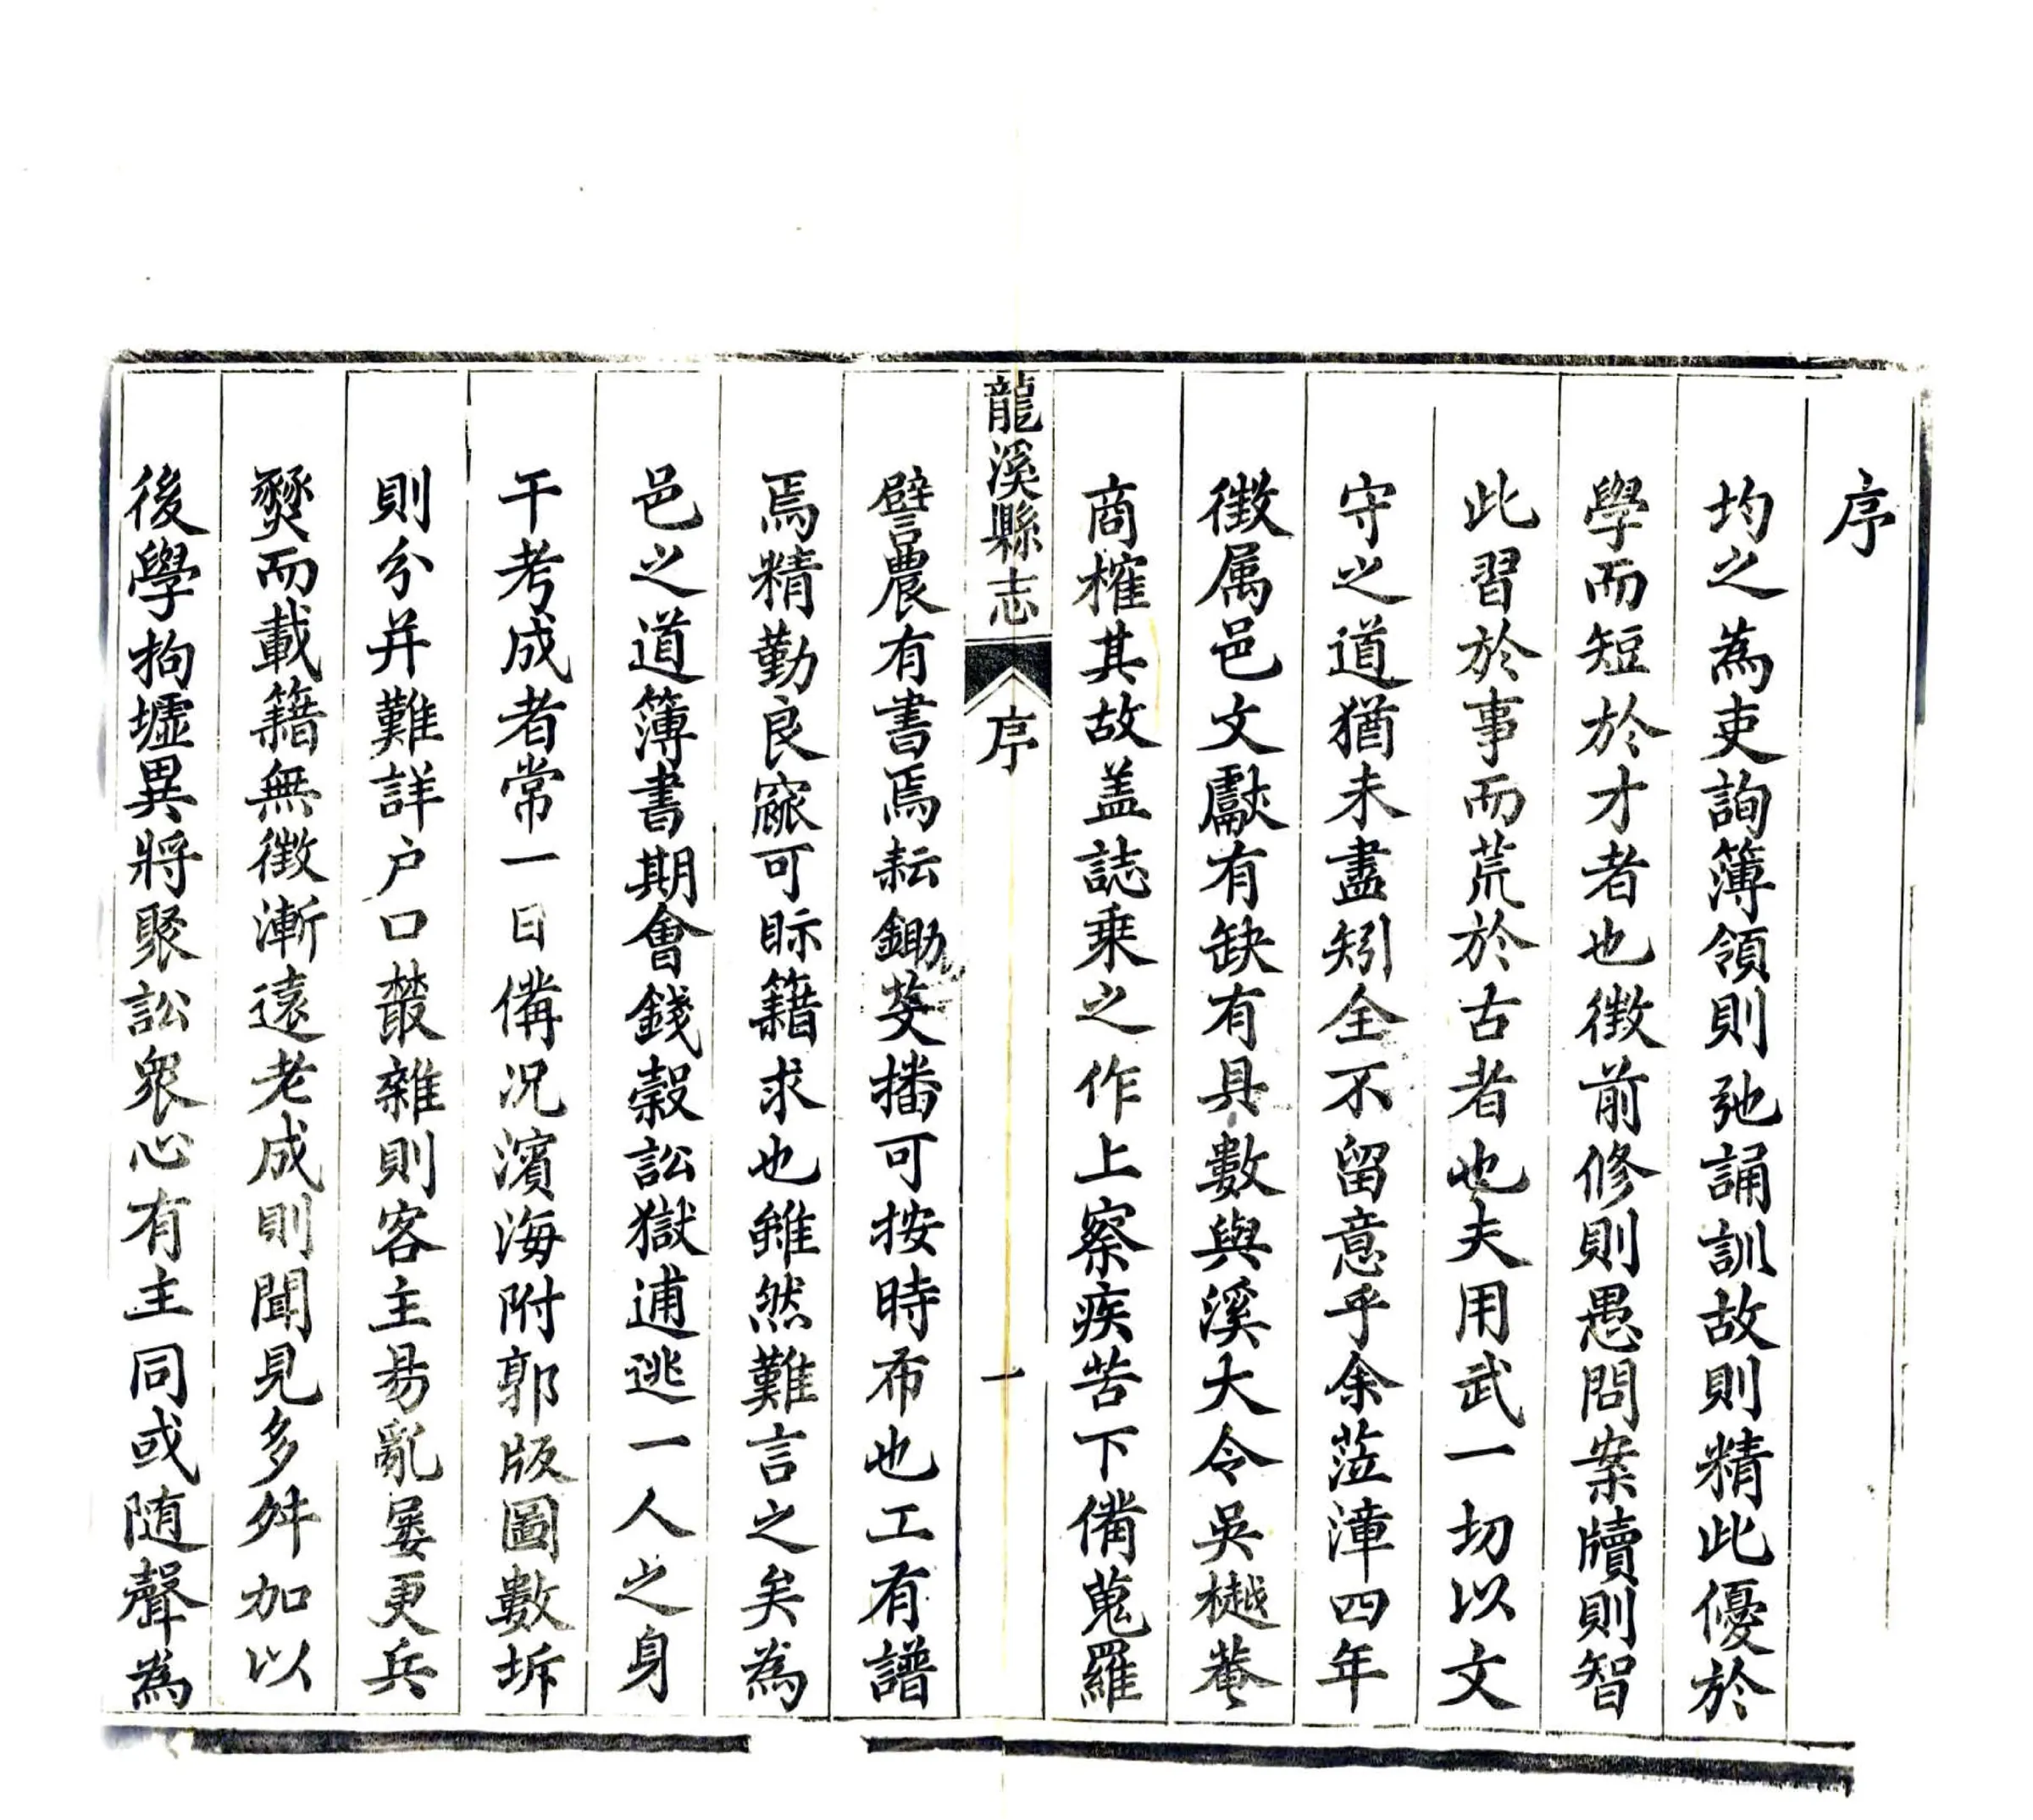 序
均之為吏詢簿領則弛誦訓故則精此優於
學而短於才者也徵前修則愚問案牘則智
此習於事而荒於古者也夫用武一切以文
守之道猶未盡矧全不留意乎余蒞漳四年
徵属邑文獻有缺有具數與溪大令吳樾菴
商榷其故盖誌乘之作上察疾苦下備蒐羅
龍溪縣志 序 一
譬農有書焉耘鋤芟播可按時布也工有譜
焉精勤良窳可眎籍求也雖然難言之矣為
邑之道簿書期會錢穀訟獄逋逃一人之身
干考成者常一日備况濱海附郭版圖數坼
則分并難詳户口叢雜則客主易亂屡更兵
燹而載籍無徵漸遠老成則聞見多舛加以
後學拘墟異將聚訟衆心有主同或随聲為